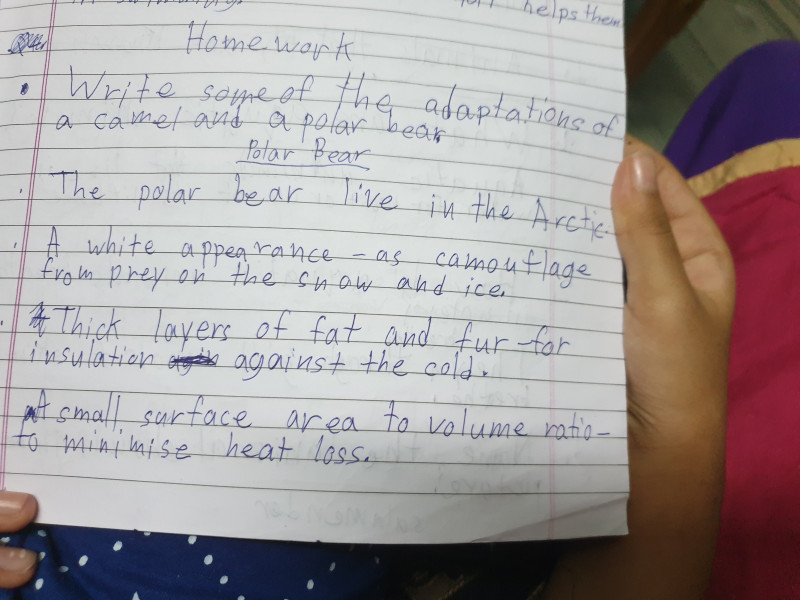 helps them
Homework
• Write some of the adaptations of
a camel and a polar bear.
Polar Bear
. The polar bear live in the Arctic.
. A white appearance - as camouflage
from prey on the snow and ice.
. Thick layers of fat and fur - for
insulation against the cold.
A small surface area to volume ratio -
to minimise heat loss.